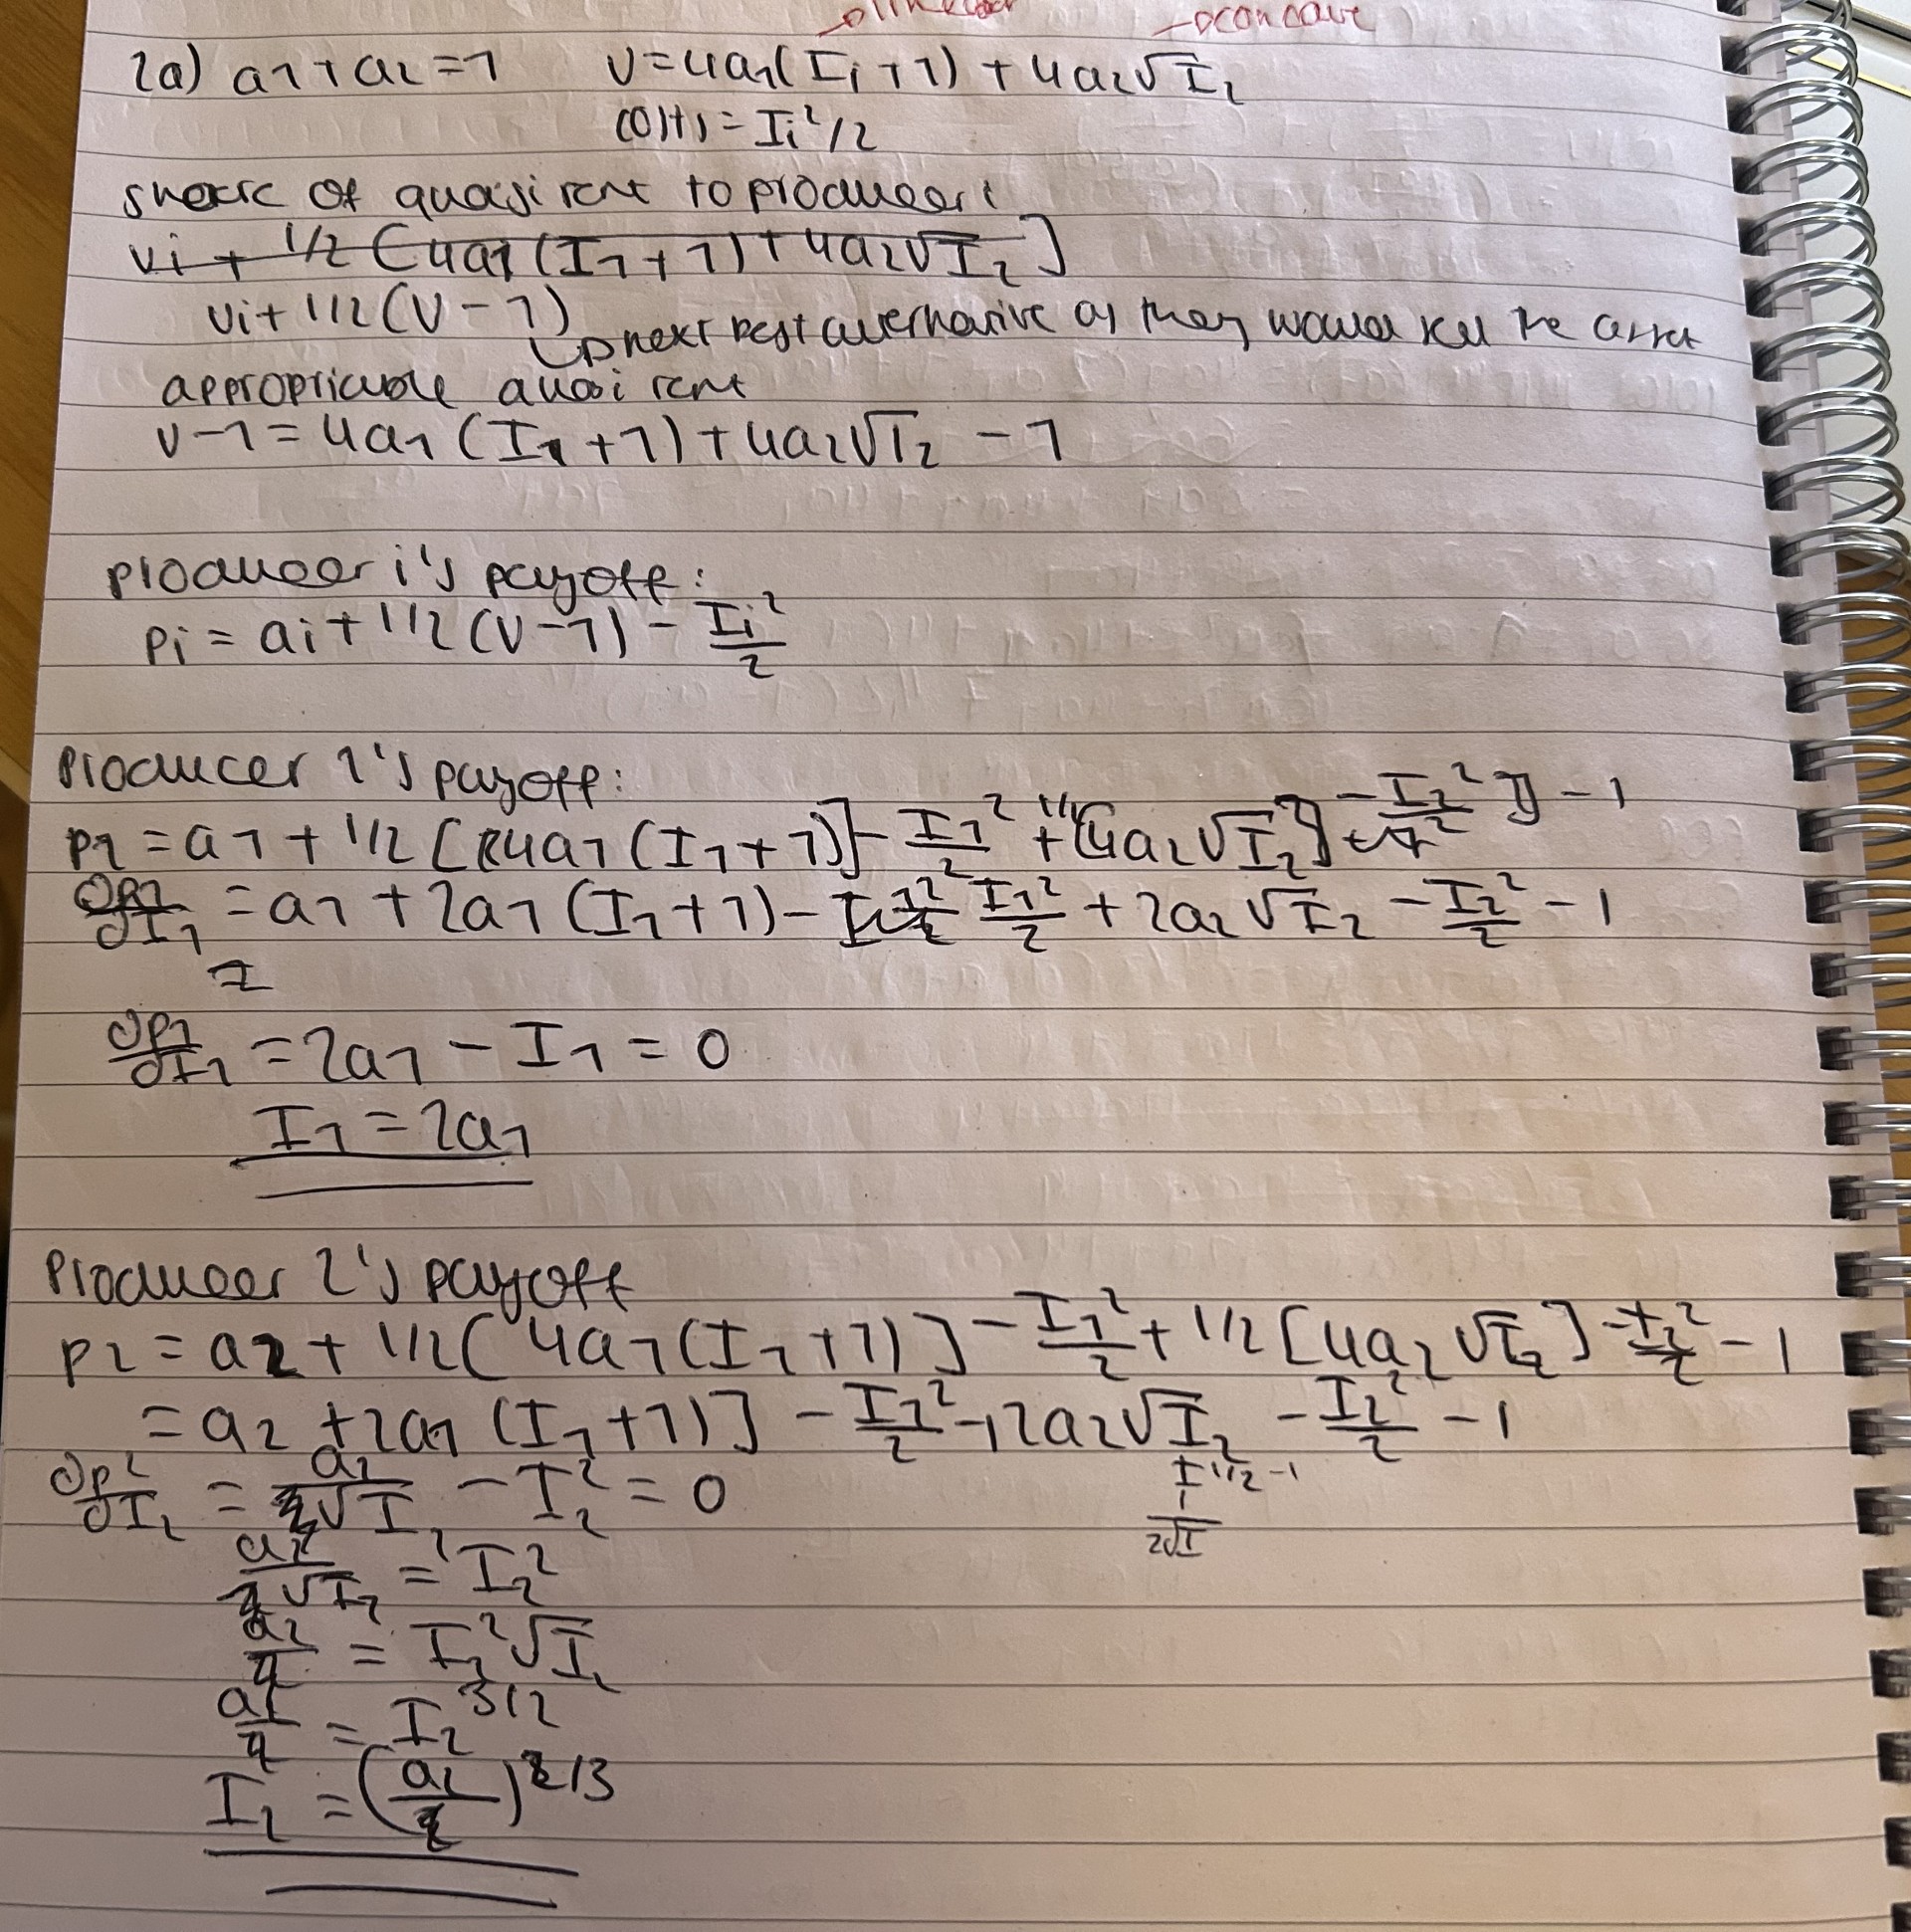 →linear →concave
2a) a1+a2=1 V=4a1(Ii+1)+4a2√I2
cost)=Ii²/2
share of quasi rent to produceer i
vi + 1/2 [4a1(I1+1)+4a2√I2]
Vi+1/2(V-1)
↳next best alternative as they would sell the asset
appropriable quasi rent
V-1=4a1(I1+1)+4a2√I2 -1
produceer i's payoff:
Pi = ai+1/2(V-1) - Ii²/2
Producer 1's payoff:
P1 = a1 + 1/2[4a1(I1+1)] - I1²/2 + 1/2[4a2√I2] - I2²/2 - 1
∂P1/∂I1 = a1 + 2a1(I1+1) - I1²/2 + 2a2√I2 - I2²/2 - 1
=
∂P1/∂I1 = 2a1 - I1 = 0
I1 = 2a1
Produceer 2's payoff
P2 = a2 + 1/2[4a1(I1+1)] - I1²/2 + 1/2[4a2√I2] - I2²/2 - 1
= a2 + 2a1(I1+1)] - I1²/2 + 2a2√I2 - I2²/2 - 1
I^1/2 -1
∂P2/∂I2 = a2/√I2 - I2² = 0
1/2√I
a2/√I2 = I2²
a2 = I2²√I2
a2 = I2^3/2
I2 = (a2)^2/3